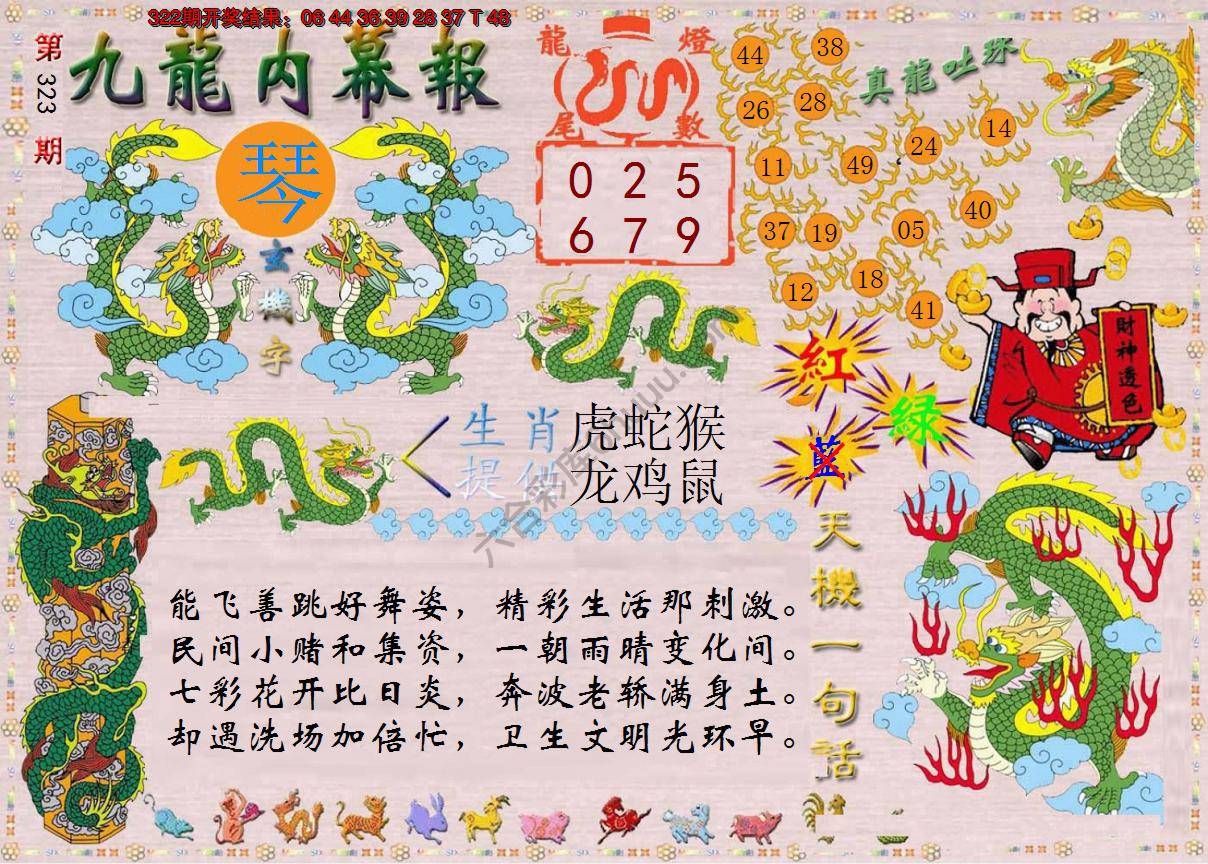 322期开奖结果：06 44 36 39 28 37 T 48
第323期
九龍内幕報
琴
玄機字
龍燈
尾數
0 2 5
6 7 9
真龍吐珠
44 38
26 28
11 49 24 14
37 19 05 40
12 18 41
財神透色
紅
綠
藍
生肖
提供
虎蛇猴
龙鸡鼠
天機一句話
能飞善跳好舞姿，精彩生活那刺激。
民间小赌和集资，一朝雨晴变化间。
七彩花开比日炎，奔波老轿满身土。
却遇洗场加倍忙，卫生文明光环早。